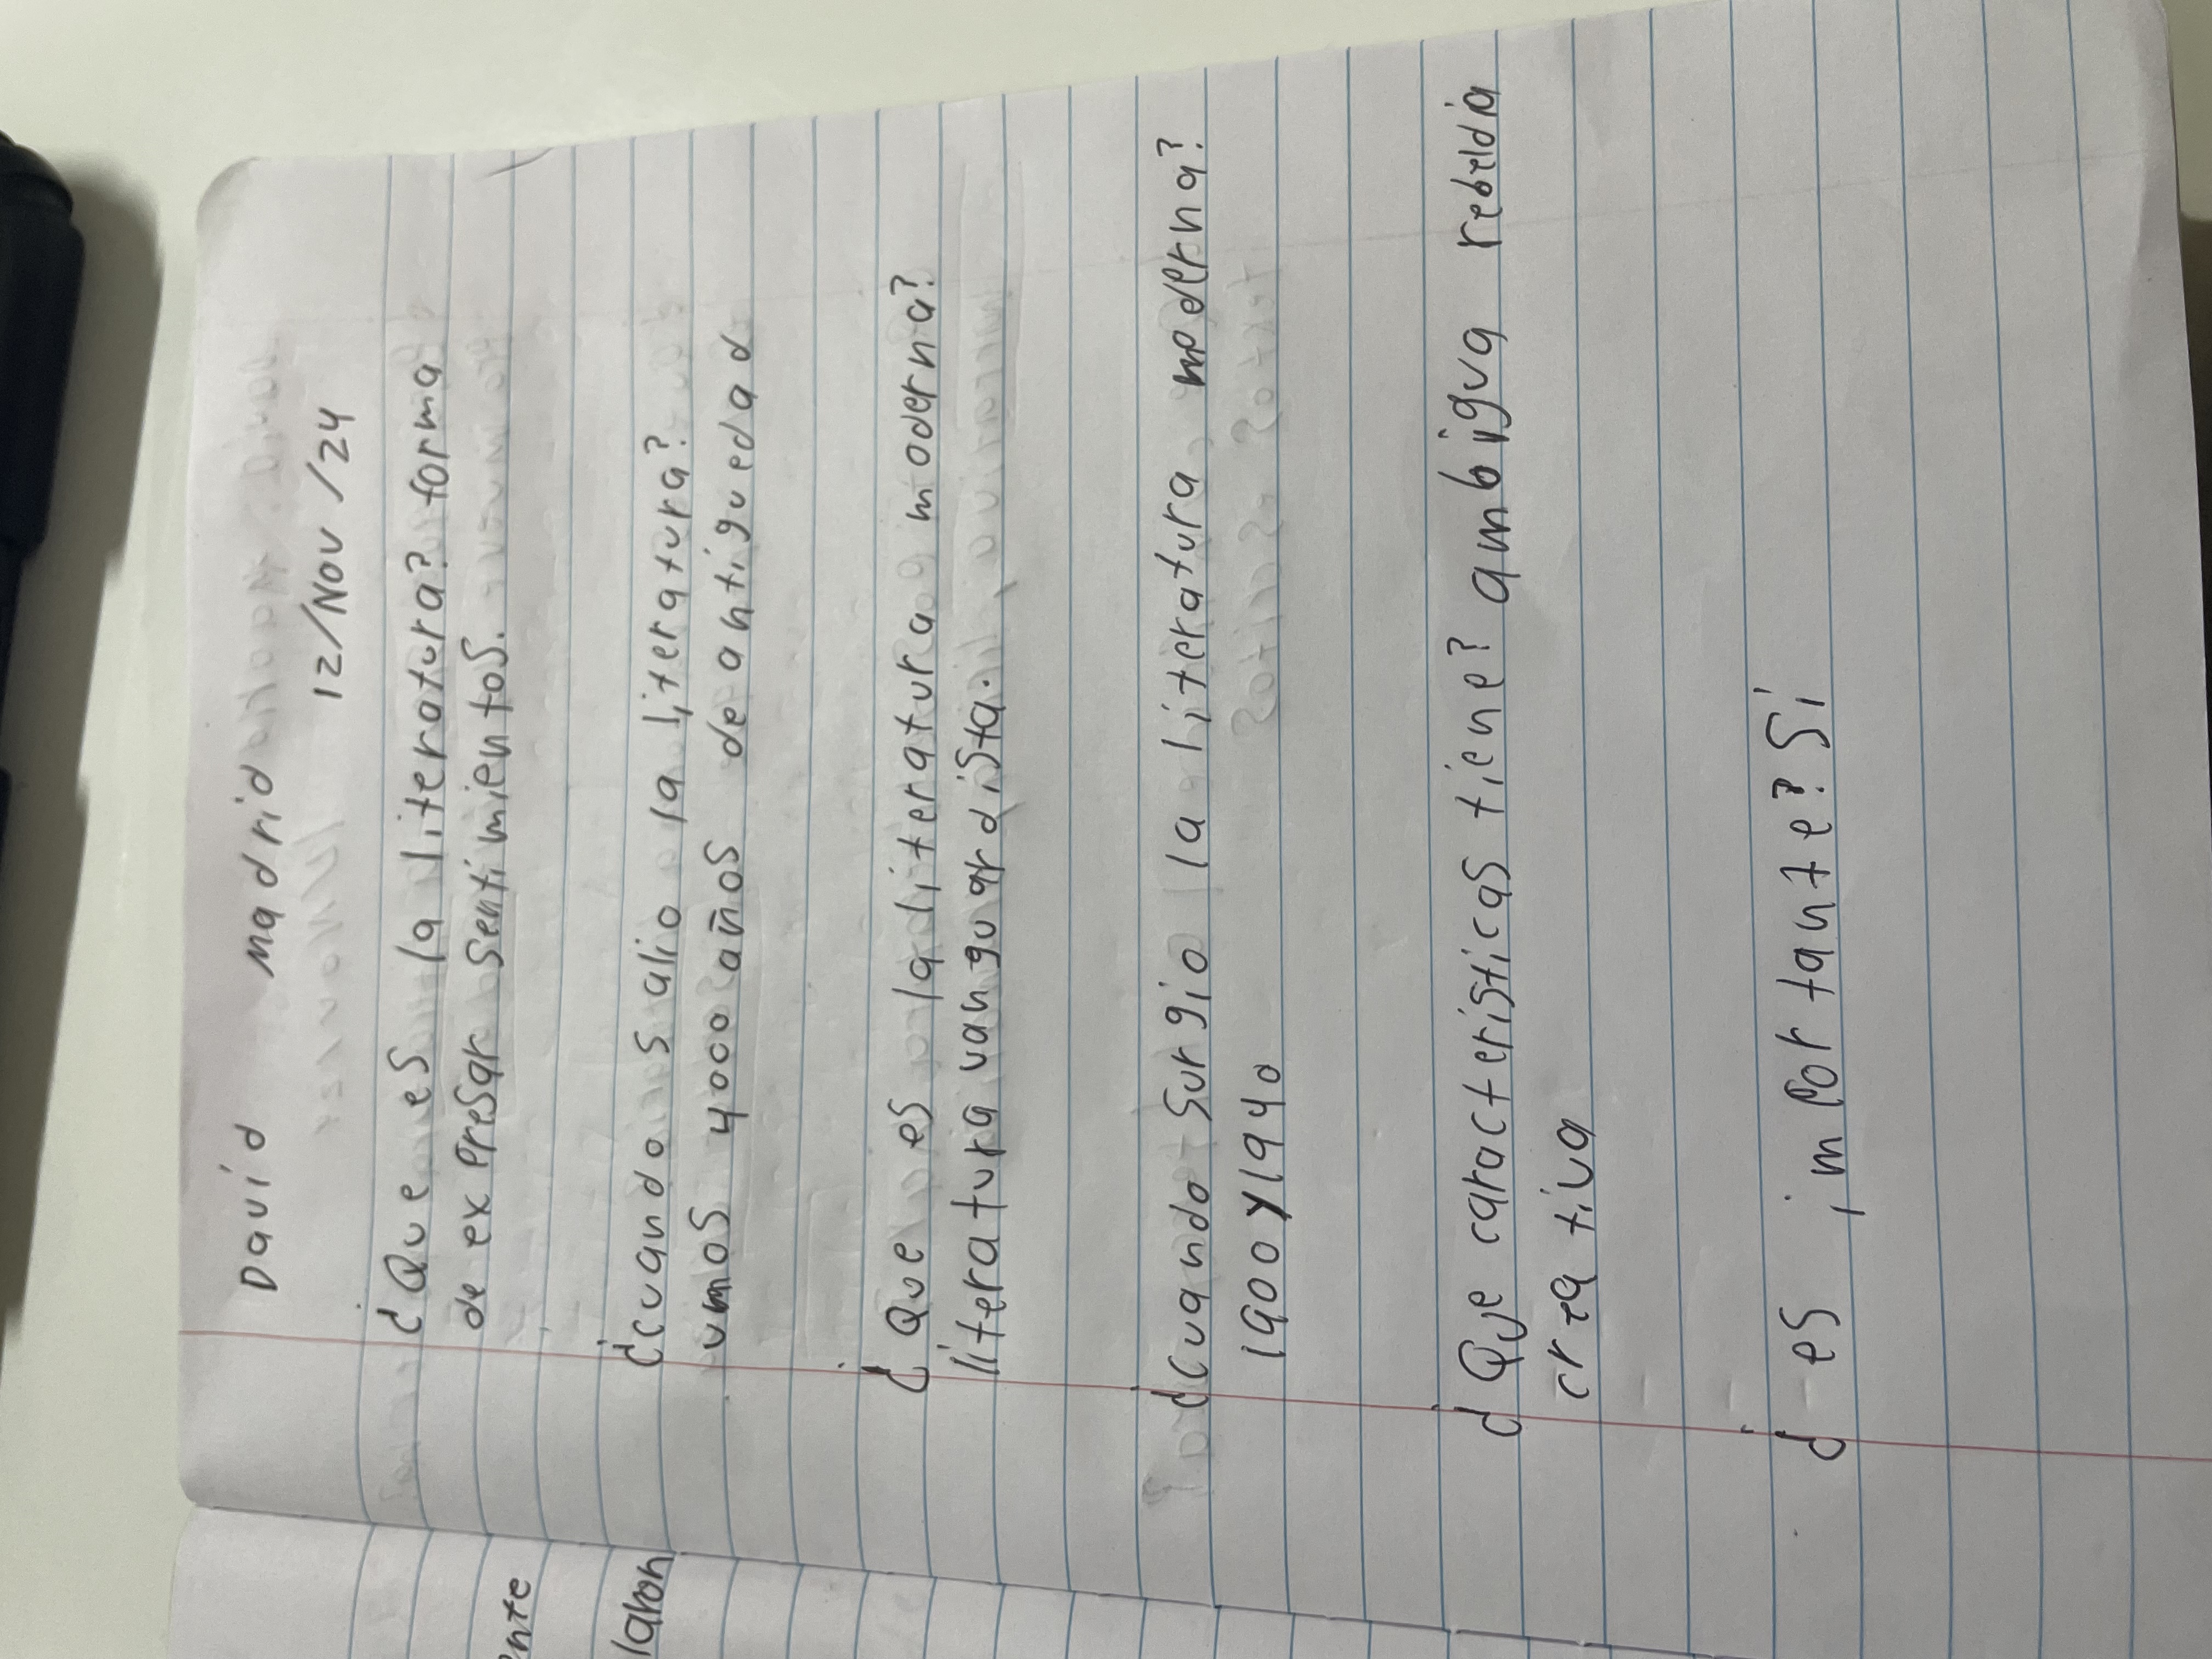 David madrid
12/Nov/24
¿Que es la literatura? forma
de expresar sentimientos.
¿cuando salio la literatura?
umos 4000 años de antiguedad
¿Que es la literatura moderna?
literatura vanguardista.
¿cuando surgio la literatura moderna?
1900 y 1940
¿Que caracteristicas tiene? ambigua rebeldia
creativa
¿es importante? Si
ente
laron